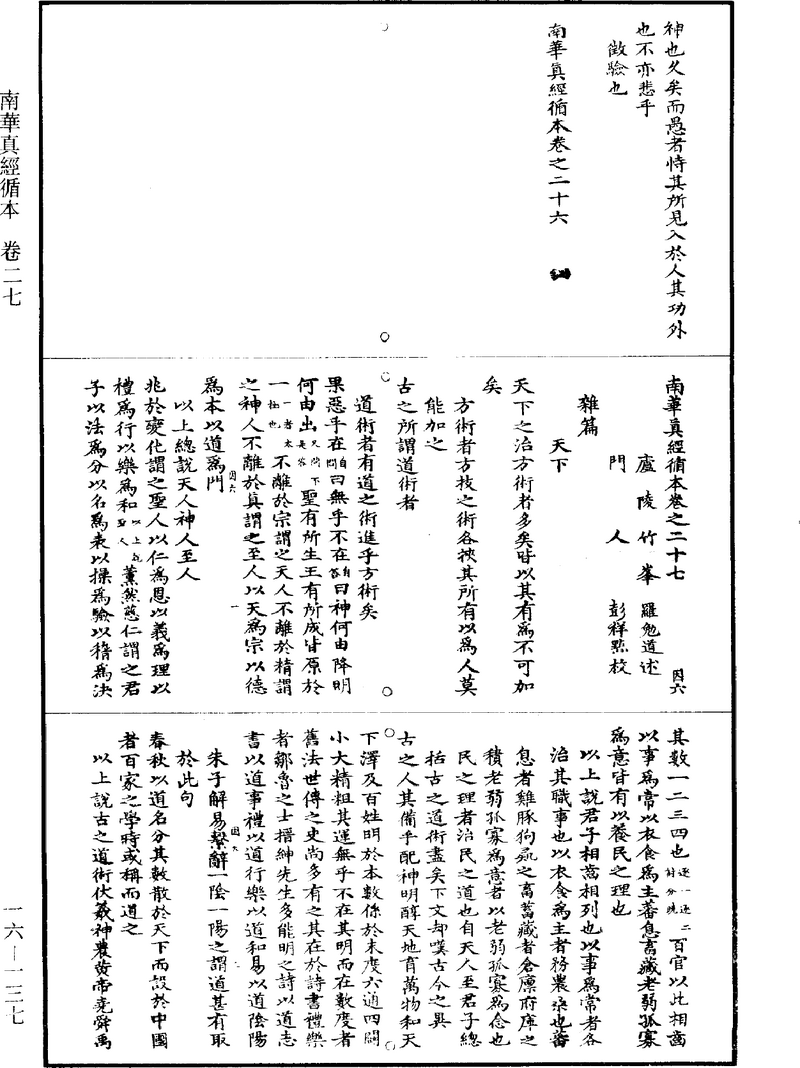 神也久矣而愚者恃其所見入於人其功外
也不亦悲乎
徵驗也
南華眞經循本卷之二十六
南華眞經循本卷之二十七 因六
廬陵竹峯 羅勉道述
門人 彭祥點校
雜篇
天下
天下之治方術者多矣皆以其有爲不可加
矣
方術者方技之術各挾其所有以爲人莫
能加之
古之所謂道術者
道術者有道之術進乎方術矣
果惡乎在自問曰無乎不在自答曰神何由降明
何由出又問下聖有所生王有所成皆原於
一一者太極也不離於宗謂之天人不離於精謂
之神人不離於眞謂之至人以天爲宗以德
爲本以道爲門
以上總說天人神人至人
兆於變化謂之聖人以仁爲恩以義爲理以
禮爲行以樂爲和以上說至人薰然慈仁謂之君
子以法爲分以名爲表以操爲驗以稽爲決
其數一二三四也逐一逐二百官以此相齒
以事爲常以衣食爲主蕃息畜藏老弱孤寡
爲意皆有以養民之理也
以上說君子相蒞相列也以事爲常者各
治其職事也以衣食爲主者務農桑也蕃
息者雞豚狗彘之畜蓄藏者倉廩府庫之
積老弱孤寡爲意者以老弱孤寡爲念也
民之理者治民之道也自天人至君子總
括古之道術盡矣下文却嘆古今之異
古之人其備乎配神明醇天地育萬物和天
下澤及百姓明於本數係於末度六通四闢
小大精粗其運無乎不在其明而在數度者
舊法世傳之史尚多有之其在於詩書禮樂
者鄒魯之士搢紳先生多能明之詩以道志
書以道事禮以道行樂以道和易以道陰陽
朱子解易繫辭一陰一陽之謂道甚有取
於此句
春秋以道名分其數散於天下而設於中國
者百家之學時或稱而道之
以上說古之道術伏羲神農黃帝堯舜禹
南華真經循本 卷二七
一六—一三七